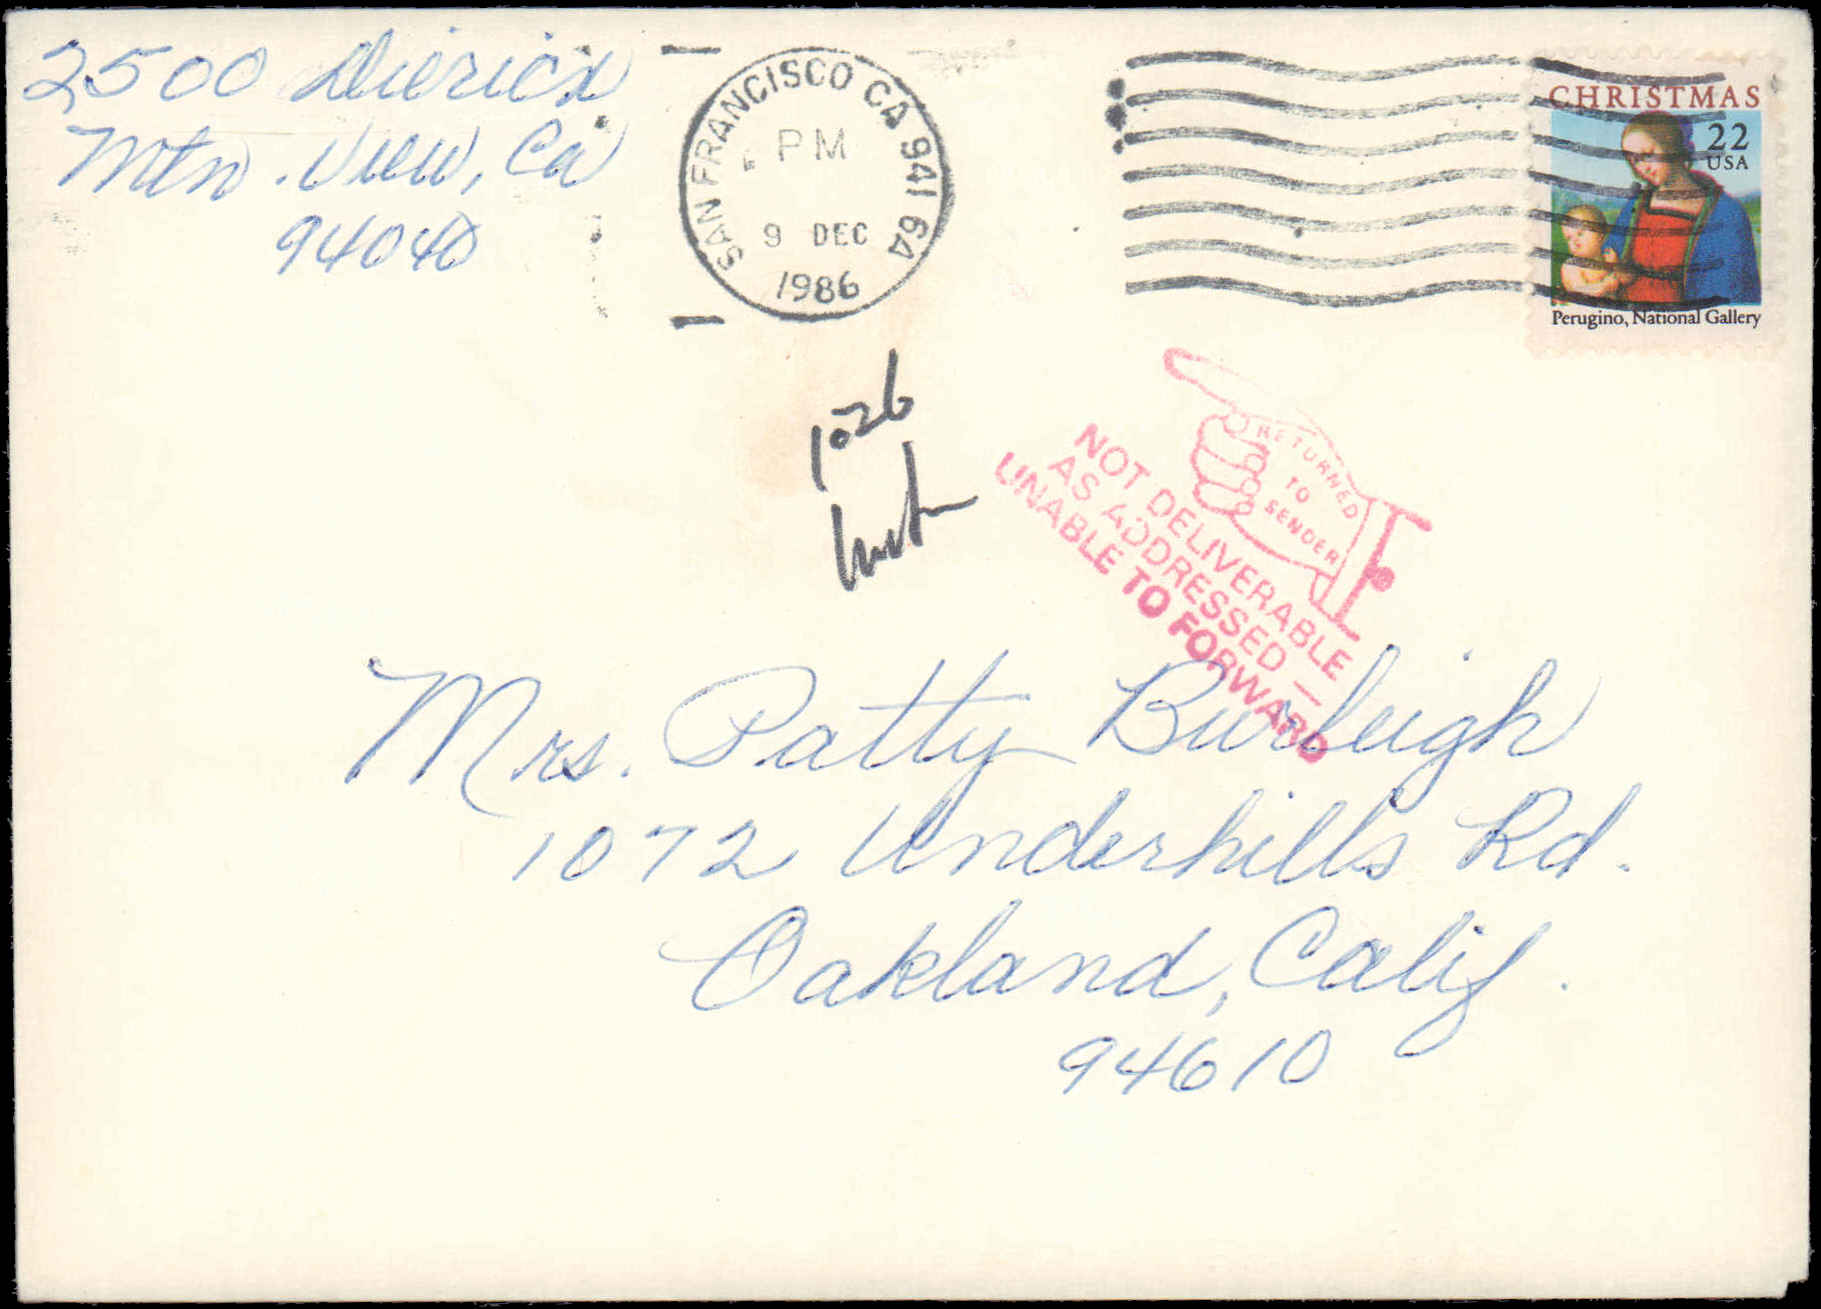 2500 Diericx
Mtn. View, Ca
94040
SAN FRANCISCO CA 941 64
PM
9 DEC
1986
CHRISTMAS
22
USA
Perugino, National Gallery
1026
RETURNED
TO
SENDER
NOT DELIVERABLE
AS ADDRESSED —
UNABLE TO FORWARD
Mrs. Patty Burleigh
1072 Underhills Rd.
Oakland, Calif.
94610